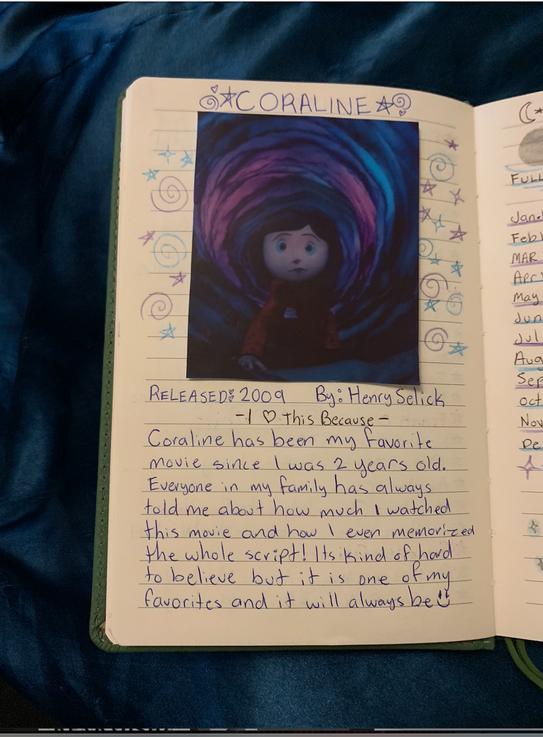 CORALINE
RELEASED: 2009 By: Henry Selick
- I ♡ This Because -
Coraline has been my favorite
movie since I was 2 years old.
Everyone in my family has always
told me about how much I watched
this movie and how I even memorized
the whole script! Its kind of hard
to believe but it is one of my
favorites and it will always be
FULL
Jan
Feb
MAR
Apr
May
Jun
Jul
Aug
Sep
oct
Nov
De